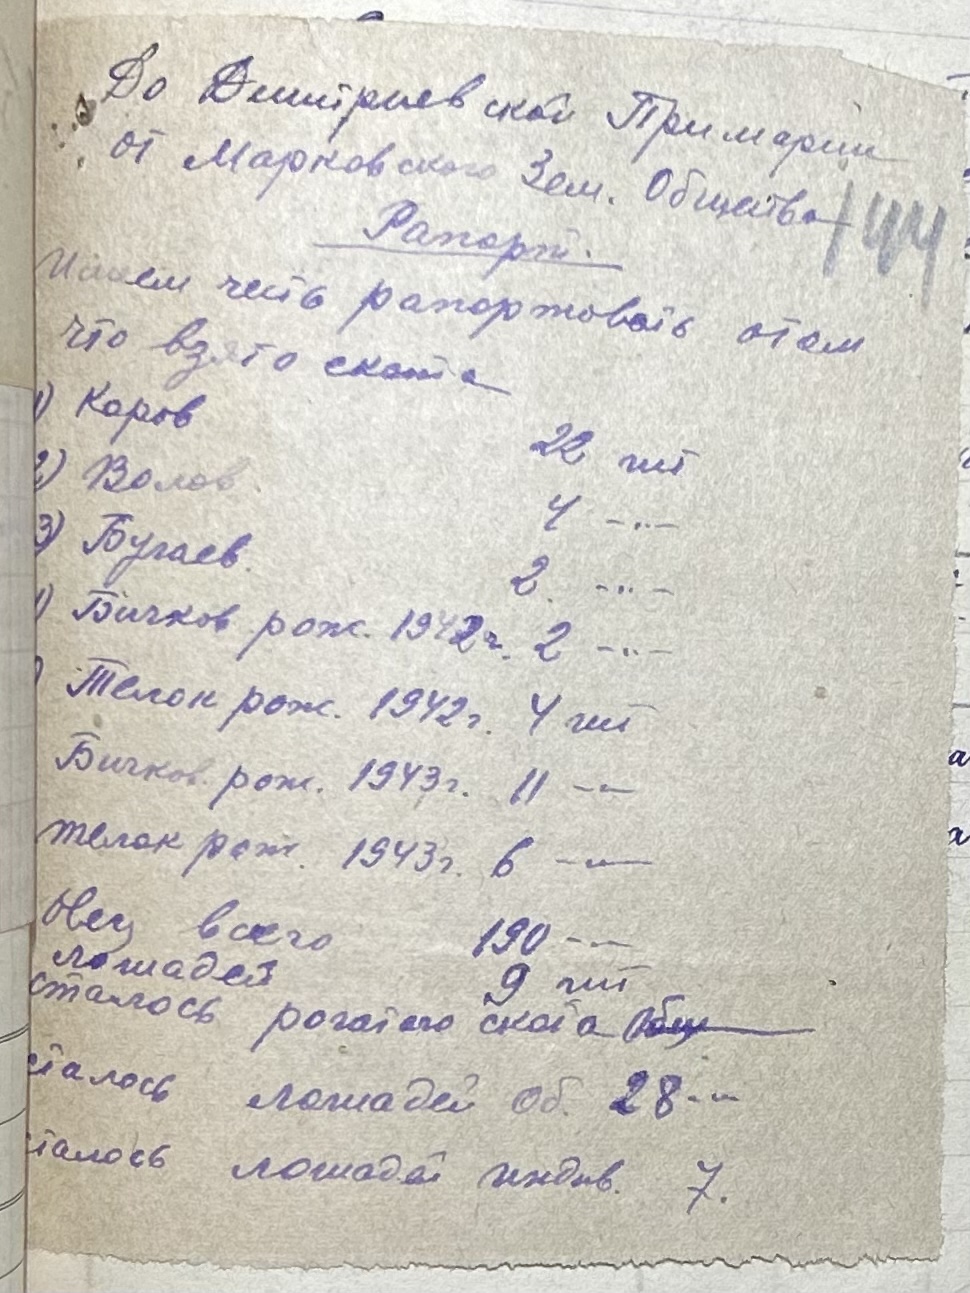 До Дмитриевской Примарии
от Марковского Зем. Общества
144
Рапорт.
Имеем честь рапортовать отом
что взято скота
1) Каров 22 шт
2) Волов 4 -"-
3) Бугаев. 2. -"-
) Бичков рож. 1942г. 2 -"-
) Телок рож. 1942г. 4 шт
Бичков. рож. 1943г. 11 -"-
телок рож. 1943г. 6 -"-
Овец всего 190 -"-
лошадей 9 шт
сталось рогатого скота
сталось лошадей об. 28 -"-
сталось лошадей индив. 7.